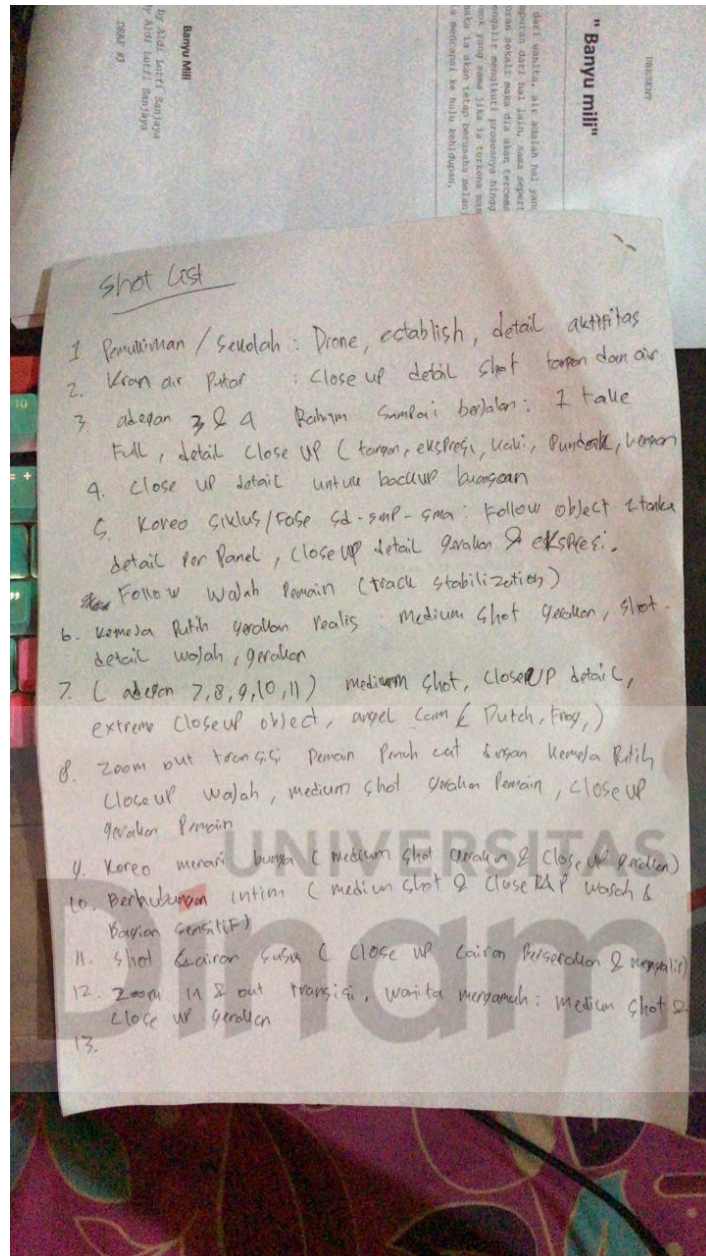 PRESENT
"Banyu mili"
dari wanita, air adalah hal yang
dari hal lain, sama seperti
sekali maka dia akan
mengikuti prosesnya hingga
yang sama jika ia terkena
maka ia akan tetap berusaha
mencapai ke hulu kehidupan.
Banyu Mili
by Aldi Lutfi Sanjaya
by Aldi Lutfi Sanjaya
DRAF #3
Shot List
1 Pemukiman / Sekolah : Drone, establish, detail aktifitas
2. Kran air Putar : Close up detail shot tangan dan air
3. adegan 3 & 4 Rahim Sampai berjalan : 1 take
Full, detail close up (tangan, ekspresi, kaki, Pundak,
4. Close up detail untuk backup
5. Koreo Siklus/Fase Sd-smp-sma : Follow object 1 take
detail Per Panel, Close up detail gerakan & ekspresi.
Follow Wajah Pemain (track stabilization)
6. Kemeja Putih gerakan realis medium shot gerakan, shot
detail wajah, gerakan
7. (adegan 7,8,9,10,11) medium shot, Close UP detail,
extreme closeup object, angel cam (Dutch, Frog,)
8. Zoom out transisi Pemain Penuh cat dengan Kemeja Putih
Close UP Wajah, medium shot gerakan Pemain, close up
gerakan Pemain
9. Koreo menari bunga (medium shot gerakan & Close UP gerakan)
10. Berhubungan intim (medium shot & Close UP wajah &
Bagian Sensitif)
11. Shot Cairan Susu (Close up Cairan Berserakan & mengalir)
12. Zoom in & out transisi, wanita mengamuk : medium shot &
Close up gerakan
13.
UNIVERSITAS
Dinam